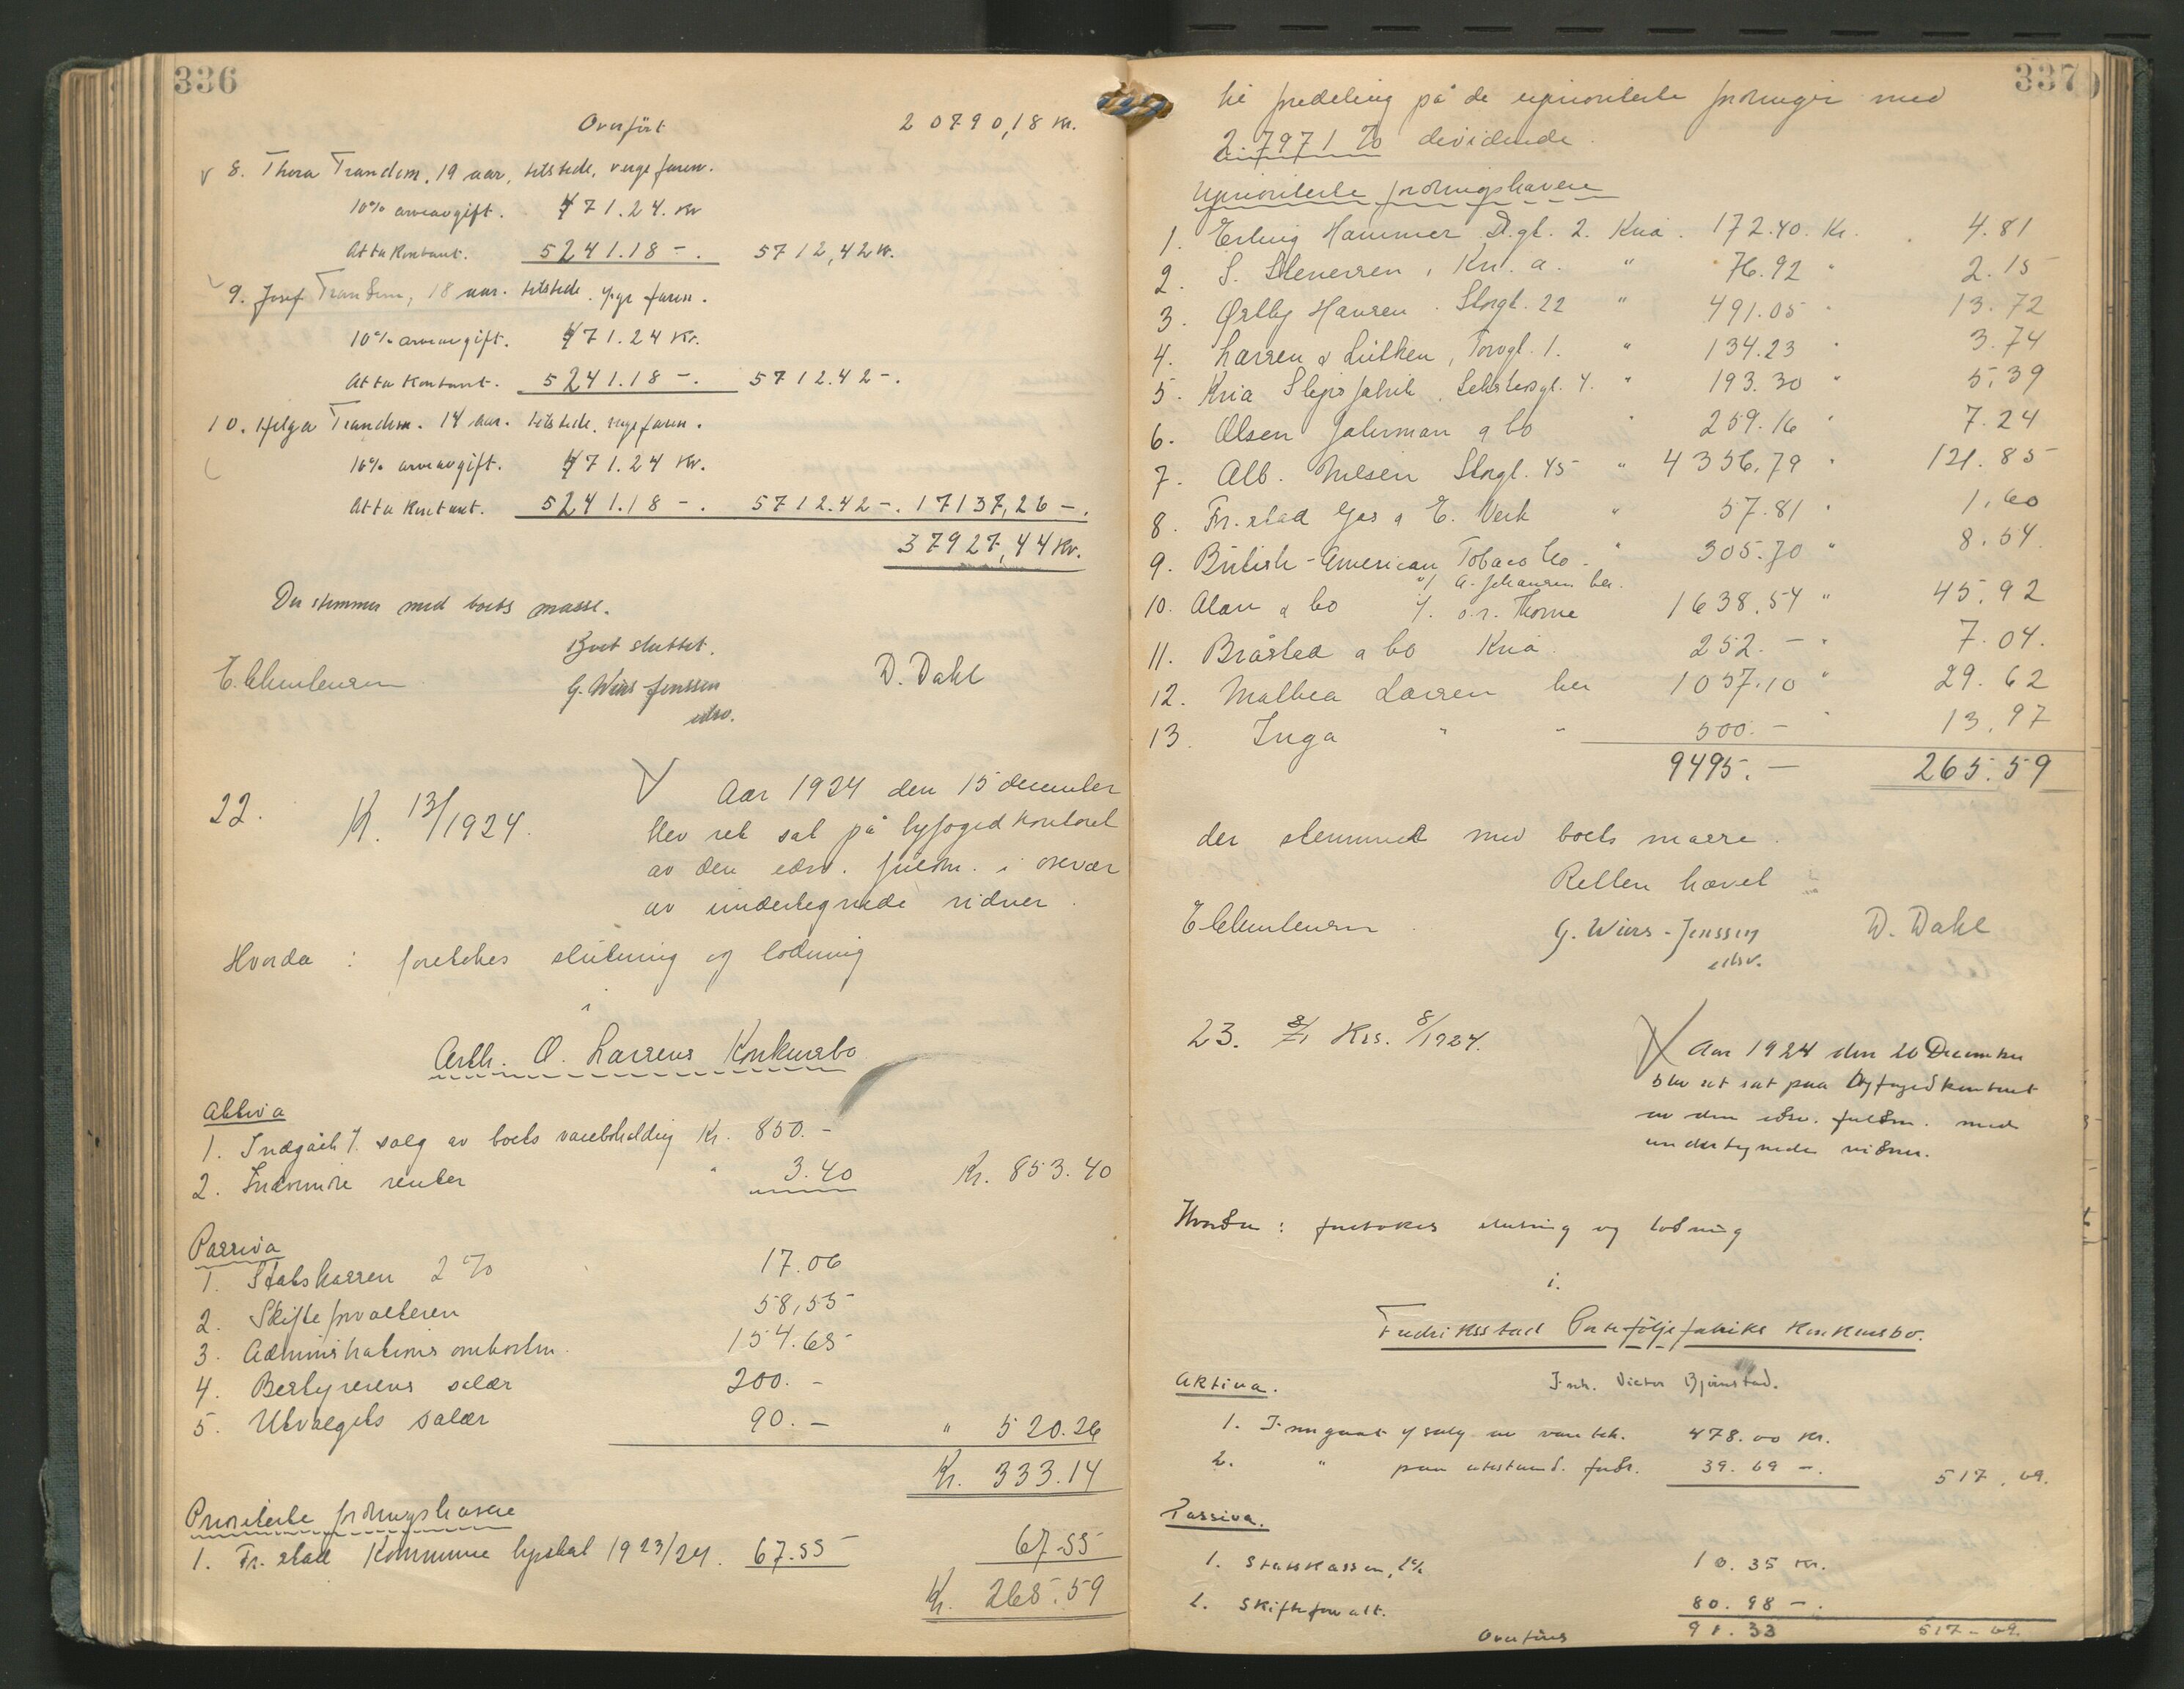 336
Overført 20790,18 Kr.
8. Thora Trandem, 19 aar, tilstede, verge faren.
10% arveavgift. 471.24. Kr
At ta kontant. 5241.18 -. 5712,42 Kr.
9. Josef Trandem, 18 aar. tilstede. verge faren.
10% arveavgift. 471.24 Kr.
At ta kontant. 5241.18 -. 5712.42 -.
10. Helga Trandem. 14 aar. tilstede. verge faren.
10% arveavgift. 471.24 Kr.
At ta kontant. 5241.18 -. 5712.42 -. 17137,26 -.
37927,44 Kr.
Der stemmer med boets masse.
Boet sluttet.
G. Wiers-Jenssen D. Dahl
edsv.
22. K. 13/1924.
Aar 1924 den 15 december
blev ret sat på byfogedkontoret
av den edsv. fuldm. i overvær
av undertegnede vidner.
Hvorda : foretokes slutning og lodning
i
Arth. O. Larsens Konkursbo
Aktiva
1. Indgåt f. salg av boets varebeholding Kr. 850.-
2. Indvundne renter " 3.40 Kr. 853.40
Passiva
1. Statskassen 2 % 17.06
2. Skifteforvalteren 58,55
3. Administrations omkostn. 154.65
4. Bestyrerens salær 200.-
5. Utvalgets salær 90.- " 520.26
Kr. 333.14
Prioriterte fordringshavere
1. Fr.stad Kommune byskat 1923/24. 67.55 67.55
Kr. 265.59
337
til fordeling på de uprioriterte fordringer med
2.7971 % dividende.
Uprioriterte fordringshavere
1. Erling Hammer D.gt. 2. Kria. 172.40. Kr. 4.81
2. S. Stenersen, Kr. a. " 76.92 " 2.15
3. Ørtby Hansen. Storgt. 22 " 491.05 " 13.72
4. Larsen & Lütken, Torvgt. 1. " 134.23 " 3.74
5. Kria Slips fabrik. Sehestedsgt. 4. " 193.30 " 5,39
6. Olsen Jahrman & Co " 259.16 " 7.24
7. Alb. Nilsen Storgt. 45 " 4356,79 " 121.85
8. Fr.stad Gas & E. Verk " 57.81 " 1,60
9. British-American Tobaco Co. " 305.70 " 8.54
v/ A. Johansen her.
10. Alan & Co f. o.r. Thorne 1638,54 " 45,92
11. Bråstad & Co Kria. 252.- " 7.04.
12. Mathea Larsen her 1057.10 " 29.62
13. Inga " " 500.- " 13,97
9495.- 265.59
der stemmet med boets masse.
Retten hævet
G. Wiers-Jenssen D. Dahl
edsv.
23. Kss. 8/1924.
Aar 1924 den 20 December
blev ret sat paa Byfogedkontoret
av den edsv. fuldm. med
undertegnede vidner.
Hvorda : foretokes slutning og lodning
i.
Fredriksstad Porteføljefabriks Konkursbo.
Inh. Victor Bjørnstad.
Aktiva.
1. Inngaat f salg av varebeh. 478.00 Kr.
2. " paa utestaaend. fordr. 39.69 -. 517.69.
Passiva.
1. Statskassen, 2% 10.35 Kr.
2. Skifteforvalt. 80.98 -.
Overføres 91.33 517-69